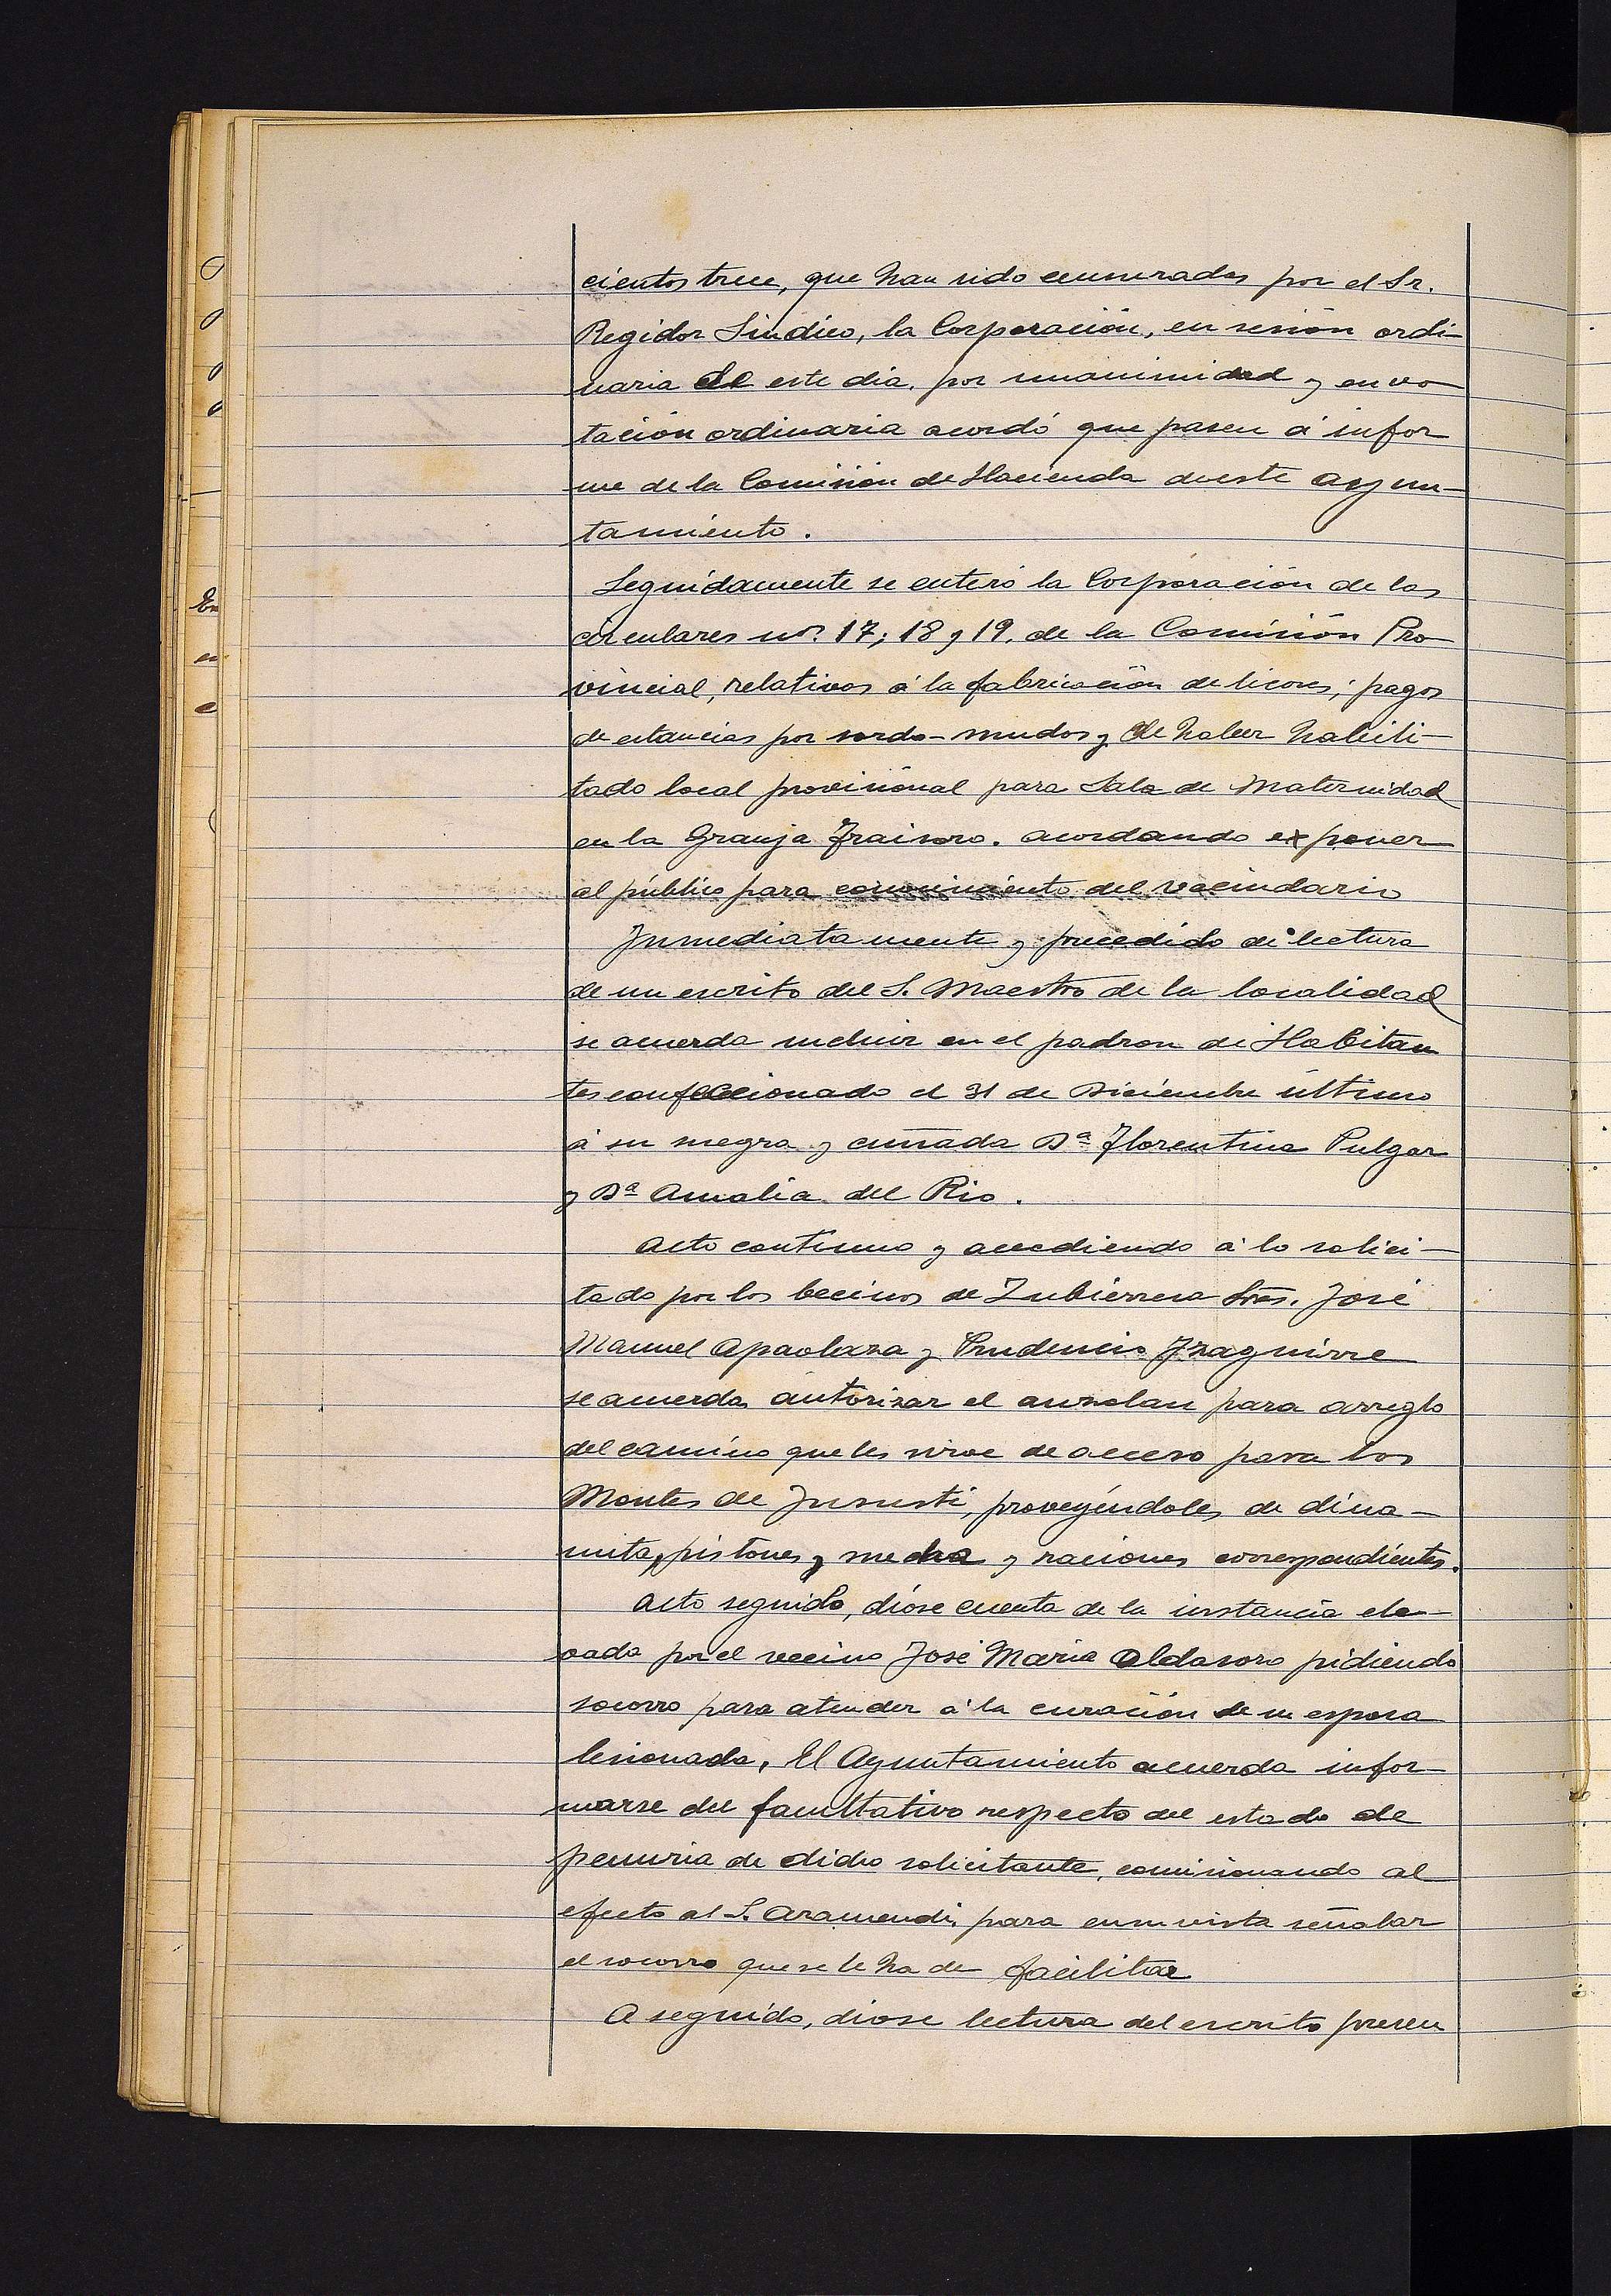 cientos trece, que han sido censuradas por el Sr.
Regidor Síndico, la Corporación, en sesión ordi-
naria de este dia, por unanimidad y en vo-
tación ordinaria acordó que pasen á infor
me de la Comisión de Hacienda de este ayun-
tamiento.
Seguídamente se enteró la Corporación de las
circulares nos. 17; 18 y 19, de la Comisión Pro-
vincial, relativas á la fabricación de licores; pagos
de estancias por sordo-mudos y de haber habili-
tado local provisional para Sala de Maternidad
en la Granja Fraisoro. acordando exponer
al público para conocimiento del vecindario
Inmediatamente y precedido de lectura
de un escrito del S. Maestro de la localidad
se acuerda incluir en el padron de Habitan
tes confeccionado el 31 de Diciembre último
á su suegra y cuñada Dª Florentina Pulgar
y Dª Amalia del Rio.
Acto contínuo y accediendo á lo solici-
tado por los becinos de Zubierrena Sres. José
Manuel Apaolaza y Prudencio Yzaguirre
se acuerda autorizar el auzolan para arreglo
del camino que les sirve de acceso para los
Montes de Jususti, proveyéndoles de dina-
mita, pistones y mecha y raciones correspondientes.
Acto seguido, dióse cuenta de la instancia ele-
vada por el vecino José María Aldasoro pidiendo
socorro para atender á la curación de su esposa
lesionada. El Ayuntamiento acuerda infor-
marse del facultativo respecto del estado de
penuria de dicho solicitante, comisionando al
efecto al S. Aramendi, para en su vista señalar
el socorro que se le ha de facilitar
A seguido, diose lectura del escrito presen